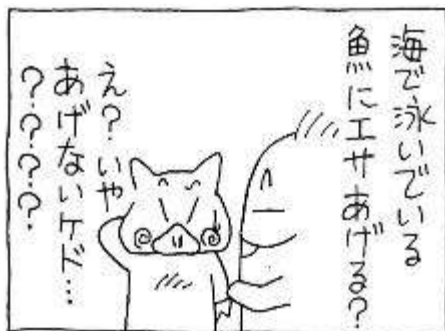 海で泳いでいる
魚にエサあげる?
え?いや
あげないケド…
????